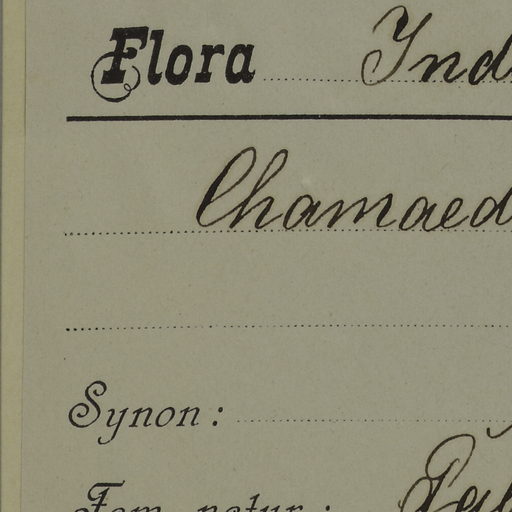 Flora Ind
Chamaed
Synon:
Fam. natur.: Pal